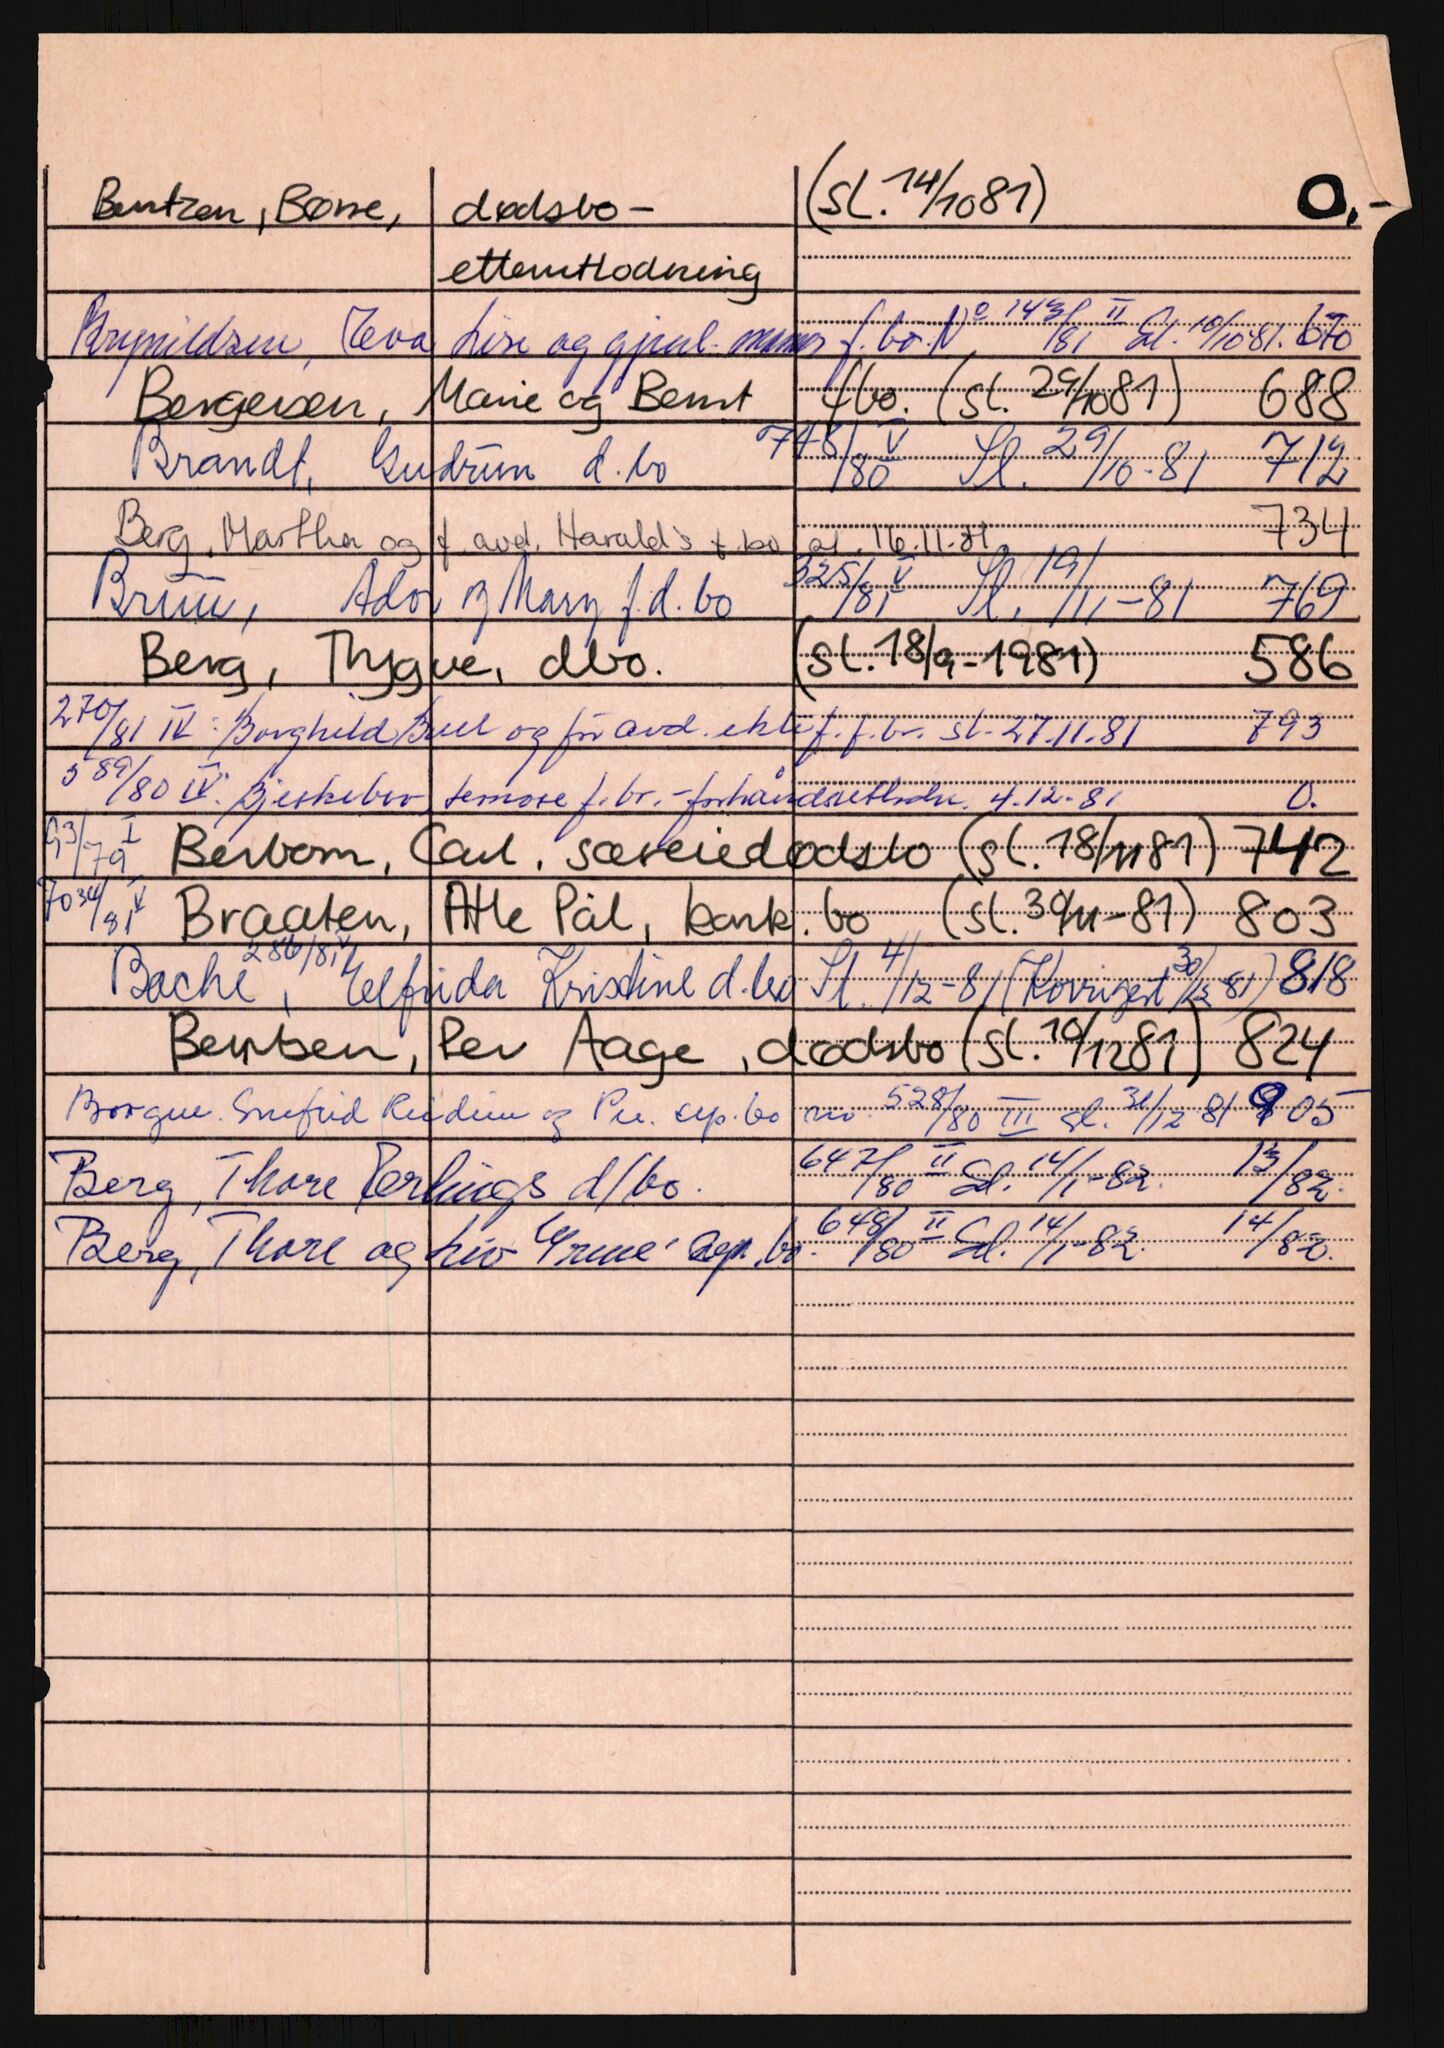 Bentzen, Børre, dødsbo - (sl. 14/10 81) 0,-
etterutlodning
Brynildsen, Eva Lise og gjenl. f. bo. No 143/81 II Sl. 10/10-81. 670
Bergersen, Marie og Bernt fbo. (sl. 29/10 81) 688
Brandt, Gudrun d. bo 748/80 V Sl. 29/10-81 712
Berg, Martha og f. avd. Harald's f. bo sl. 16.11.81 734
Bruu, Ador og Mary f. d. bo 325/81 V Sl. 19/11-81 769
Berg, Thygve, dbo. (sl. 18/9-1981) 586
270/81 IV: Borghild Buer og før avd. ektef. f. bo. sl. 27.11.81 793
589/80 IV: f. bo. - forhåndsutlodn. 4.12.81 0.
93/79 I Berbom, Carl, særeiedødsbo (sl. 18/11 81) 742
7034/81 V Braaten, Atle Pål, konk. bo (sl. 30/11-81) 803
Bache, 286/81 V Elfrida Kristine d. bo Sl. 4/12-81 (Korrigert 30/12 81) 818
Berntsen, Per Aage, dødsbo (sl. 10/12 81) 824
Borgen og Per sep. bo no 528/80 III sl. 31/12 81 905
Berg, Thore Erlings d/bo. 647/80 II Sl. 14/1-82. 13/82.
Berg, Thore og Liv sep. bo. 648/80 II Sl. 14/1-82. 14/82.